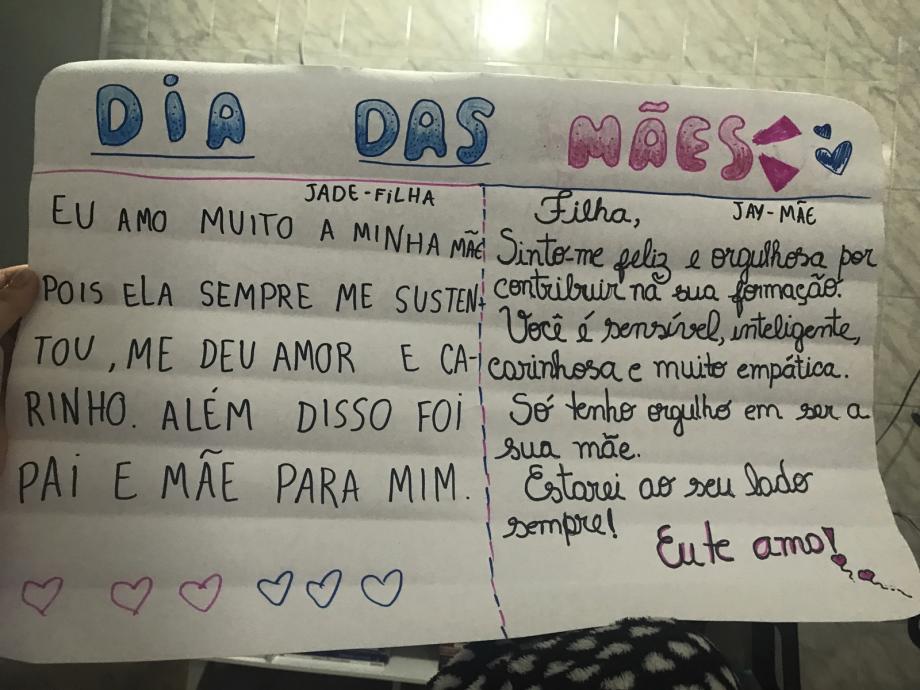 DIA DAS MÃES
JADE-FILHA
EU AMO MUITO A MINHA MÃE
POIS ELA SEMPRE ME SUSTEN-
TOU, ME DEU AMOR E CA-
RINHO. ALÉM DISSO FOI
PAI E MÃE PARA MIM.
Filha,
JAY-MÃE
Sinto-me feliz e orgulhosa por
contribuir na sua formação.
Você é sensível, inteligente,
carinhosa e muito empática.
Só tenho orgulho em ser a
sua mãe.
Estarei ao seu lado
sempre!
Eu te amo!